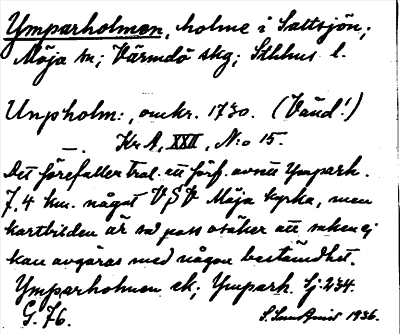 Ymparholmen, holme i Saltsjön;
Möja sn; Värmdö skg; Sthlms l.
Unpholm:, omkr. 1730. (Vänd!)
Kr A, XXII, N:o 15.
Det förefaller tral. att förf. avsett Ympark.
7.4 km. något VSV Möja kyrka, men
kartbilden är så pass osäker att saken ej
kan avgöras med någon bestämdhet.
Ymparholmen ek; Ympark. Sj. 234.
G. 76.
1936.